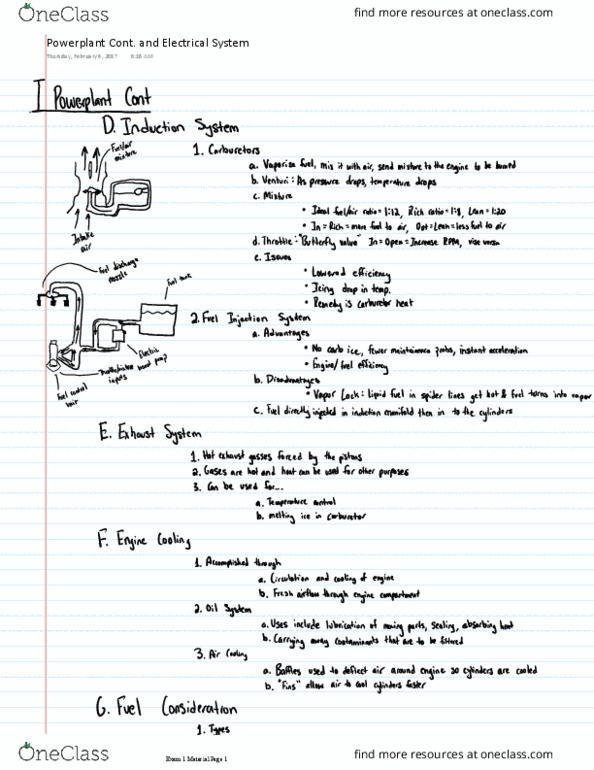 OneClass
find more resources at oneclass.com
Powerplant Cont. and Electrical System
Thursday, February 9, 2017 8:28 AM
I Powerplant Cont
D. Induction System
Fuel/air mixture
Intake air
1. Carburetors
a. Vaporize fuel, mix it with air, send mixture to the engine to be burned
b. Venturi: As pressure drops, temperature drops
c. Mixture
• Ideal fuel/air ratio = 1:12, Rich ratio = 1:8, Lean = 1:20
• In = Rich = more fuel to air, Out = Lean = less fuel to air
d. Throttle: "Butterfly valve" In = Open = Increase RPM, vise versa
e. Issues
• Lowered efficiency
• Icing drop in temp.
• Remedy is carburetor heat
Fuel discharge nozzle
Fuel tank
Electric boost pump
Throttle/mixture inputs
Fuel control unit
2. Fuel Injection System
a. Advantages
• No carb ice, fewer maintenance probs, instant acceleration
• Engine/fuel efficiency
b. Disadvantages
• Vapor Lock: liquid fuel in spider lines get hot & fuel turns into vapor
c. Fuel directly injected in induction manifold then in to the cylinders
E. Exhaust System
1. Hot exhaust gasses forced by the pistons
2. Gases are hot and heat can be used for other purposes
3. Can be used for...
a. Temperature control
b. melting ice in carburetor
F. Engine Cooling
1. Accomplished through
a. Circulation and cooling of engine
b. Fresh airflow through engine compartment
2. Oil System
a. Uses include lubrication of moving parts, sealing, absorbing heat
b. Carrying away contaminants that are to be filtered
3. Air Cooling
a. Baffles used to deflect air around engine so cylinders are cooled
b. "Fins" allow air to cool cylinders faster
G. Fuel Consideration
1. Types
OneClass
Exam 1 Material Page 1
find more resources at oneclass.com